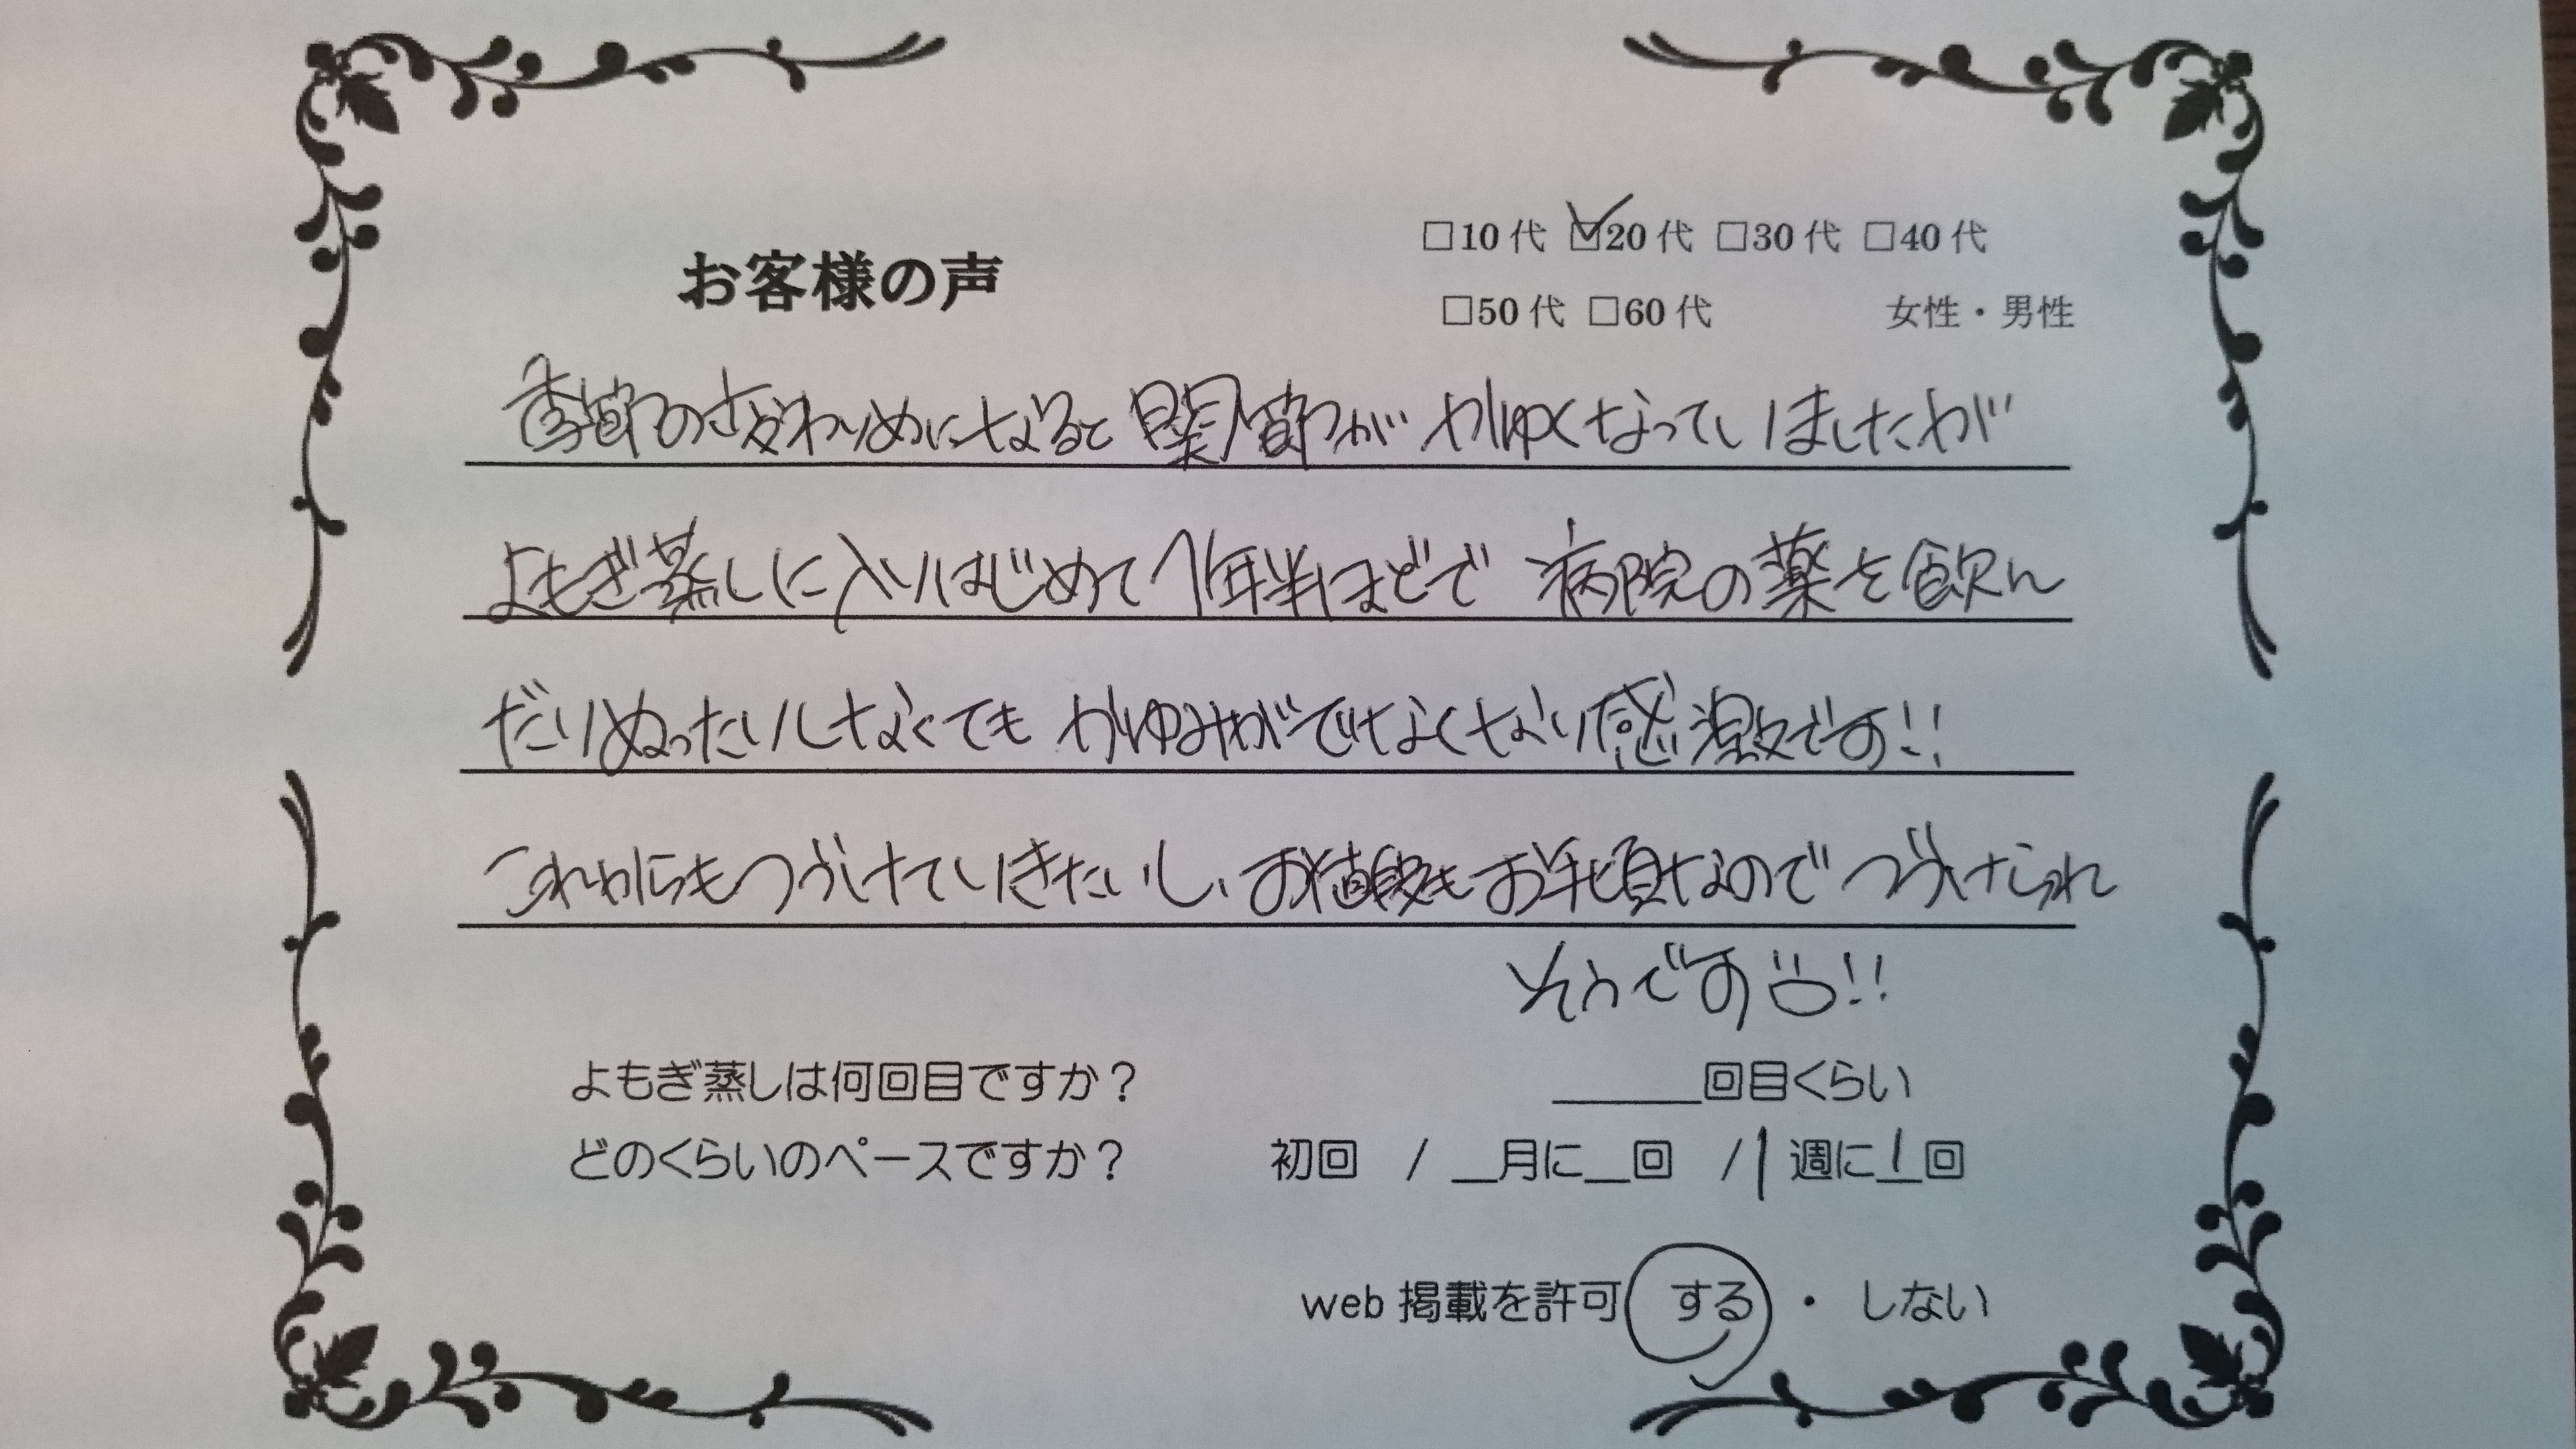 □10代 ☑20代 □30代 □40代
お客様の声
□50代 □60代 女性・男性
季節の変わりめになると関節がかゆくなっていましたが
よもぎ蒸しに入りはじめて1年半ほどで 病院の薬を飲ん
だりぬったりしなくても かゆみがでなくなり感激です!!
これからもつづけていきたいし、お値段もお手頃なので つづけられ
そうです!!
よもぎ蒸しは何回目ですか？ ＿＿＿回目くらい
どのくらいのペースですか？ 初回 / ＿月に＿回 / 1 週に1回
web 掲載を許可 する ・ しない